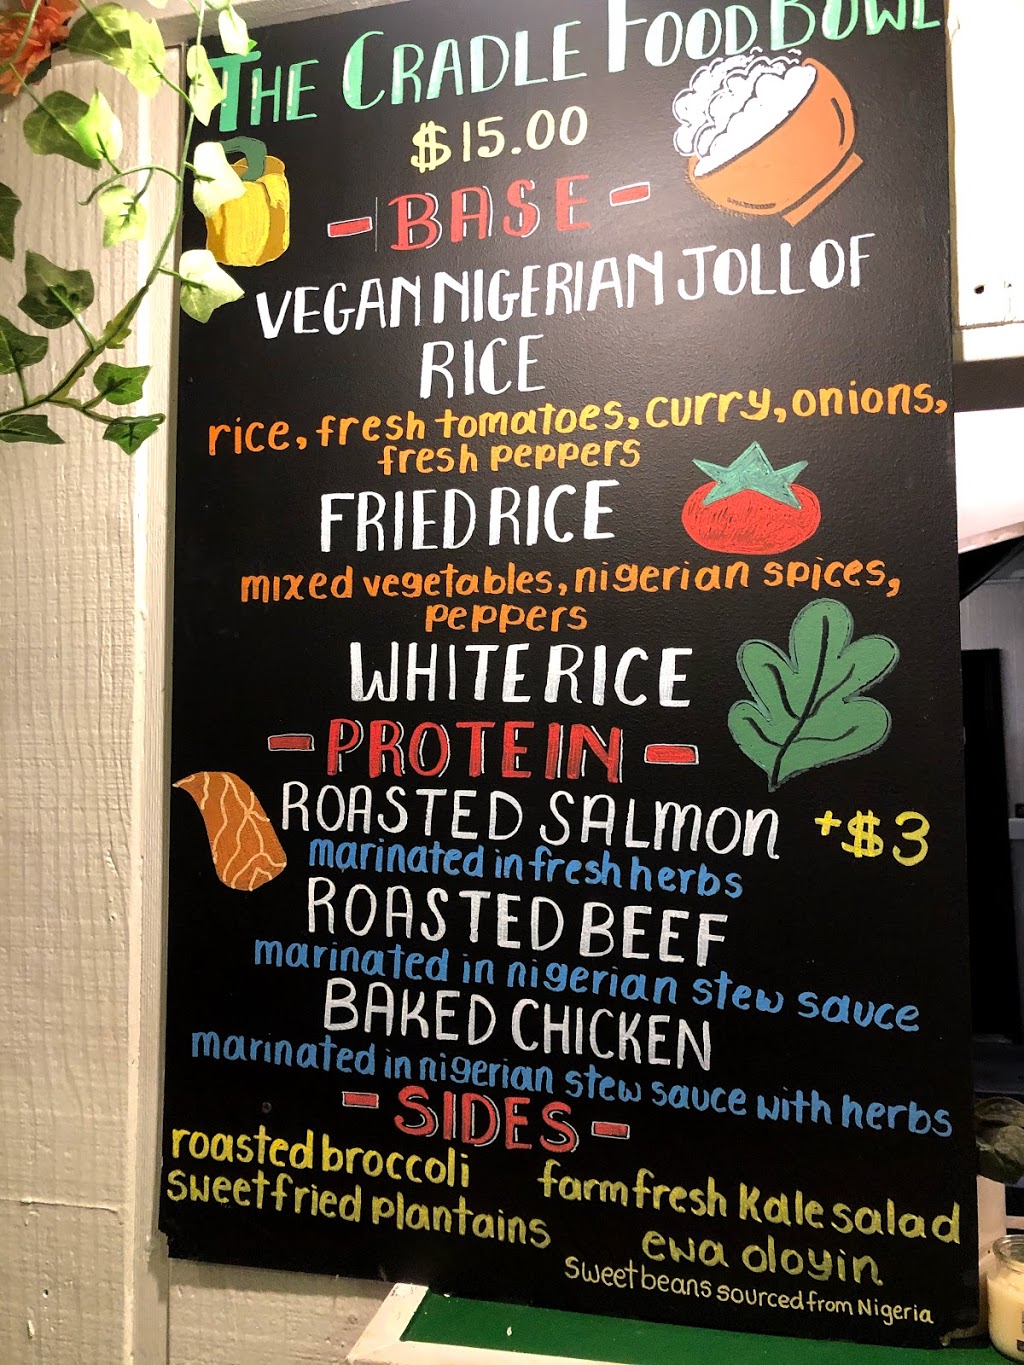 THE CRADLE FOOD BOWL
$15.00
- BASE -
VEGAN NIGERIAN JOLLOF
RICE
rice, fresh tomatoes, curry, onions,
fresh peppers
FRIED RICE
mixed vegetables, nigerian spices,
peppers
WHITE RICE
- PROTEIN -
ROASTED SALMON +$3
marinated in fresh herbs
ROASTED BEEF
marinated in nigerian stew sauce
BAKED CHICKEN
marinated in nigerian stew sauce with herbs
- SIDES -
roasted broccoli
sweet fried plantains
farm fresh Kale salad
ewa oloyin
Sweet beans sourced from Nigeria